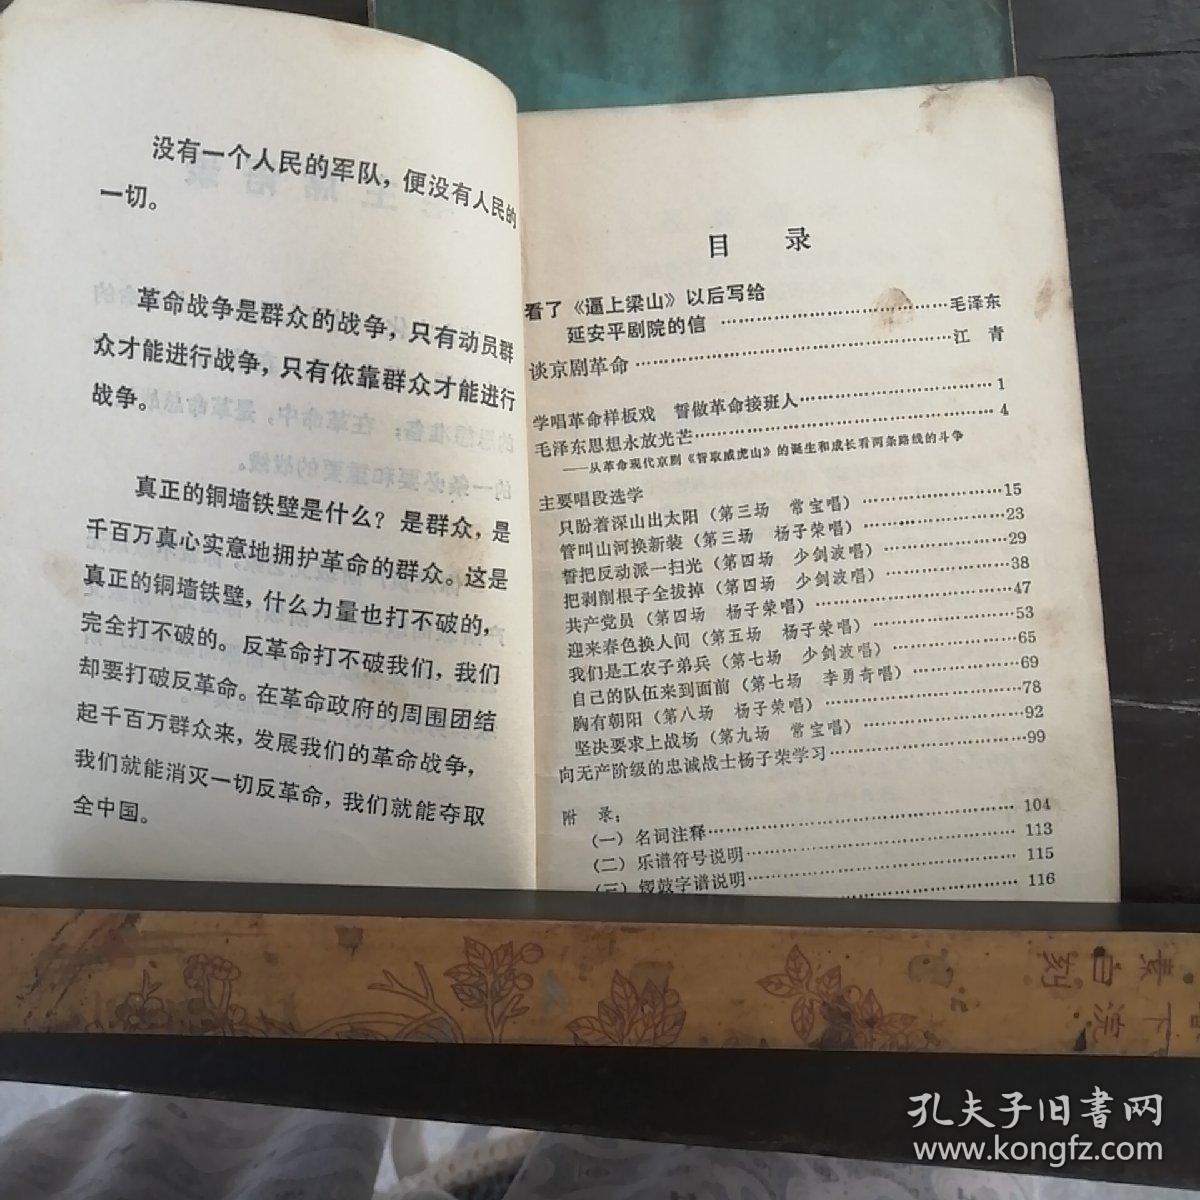 没有一个人民的军队，便没有人民的
一切。
革命战争是群众的战争，只有动员群
众才能进行战争，只有依靠群众才能进行
战争。
真正的铜墙铁壁是什么？是群众，是
千百万真心实意地拥护革命的群众。这是
真正的铜墙铁壁，什么力量也打不破的，
完全打不破的。反革命打不破我们，我们
却要打破反革命。在革命政府的周围团结
起千百万群众来，发展我们的革命战争，
我们就能消灭一切反革命，我们就能夺取
全中国。
目 录
看了《逼上梁山》以后写给
延安平剧院的信……………………………毛泽东
谈京剧革命……………………………………江 青
学唱革命样板戏 誓做革命接班人……………………1
毛泽东思想永放光芒……………………………………4
——从革命现代京剧《智取威虎山》的诞生和成长看两条路线的斗争
主要唱段选学
只盼着深山出太阳（第三场 常宝唱）………………15
管叫山河换新装（第三场 杨子荣唱）………………23
誓把反动派一扫光（第四场 少剑波唱）……………29
把剥削根子全拔掉（第四场 少剑波唱）……………38
共产党员（第四场 杨子荣唱）………………………47
迎来春色换人间（第五场 杨子荣唱）………………53
我们是工农子弟兵（第七场 少剑波唱）……………65
自己的队伍来到面前（第七场 李勇奇唱）…………69
胸有朝阳（第八场 杨子荣唱）………………………78
坚决要求上战场（第九场 常宝唱）…………………92
向无产阶级的忠诚战士杨子荣学习……………………99
附 录：
（一）名词注释………………………………………104
（二）乐谱符号说明…………………………………113
（三）锣鼓字谱说明…………………………………115
………………116
孔夫子旧書网
www.kongfz.com